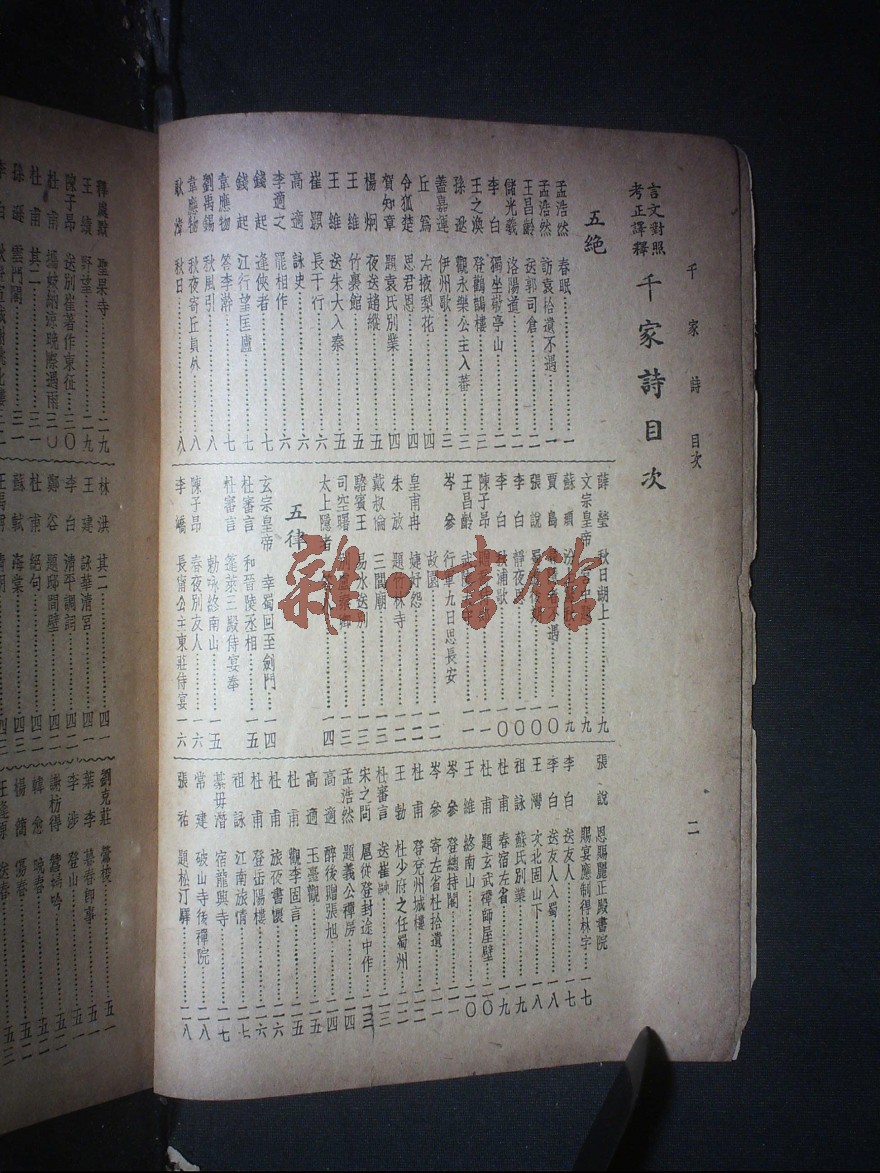 千家詩 目次
二
言文對照
考正譯釋
千家詩目次
五絕
孟浩然 春眠……一
孟浩然 訪袁拾遺不遇……一
王昌齡 送郭司倉……二
儲光羲 洛陽道……二
李白 獨坐敬亭山……二
王之渙 登鸛鵲樓……三
孫逖 觀永樂公主入蕃……三
蓋嘉運 伊州歌……三
丘為 左掖梨花……四
令狐楚 思君恩……四
賀知章 題袁氏別業……四
楊炯 夜送趙縱……五
王維 竹裏館……五
王維 送朱大入秦……五
崔顥 長干行……六
高適 詠史……六
李適之 罷相作……六
錢起 逢俠者……七
錢起 江行望匡廬……七
韋應物 答李澣……七
劉禹錫 秋風引……八
韋應物 秋夜寄丘員外……八
耿湋 秋日……八
薛瑩 秋日湖上……九
文宗皇帝……九
蘇頲 汾……九
賈島……遇……一〇
張說……一〇
李白 靜夜思……一〇
李白 秋浦歌……一一
陳子昂……一一
王昌齡……一一
岑參 行軍九日思長安
故園……一二
皇甫冉 婕妤怨……一二
朱放 題竹林寺……一二
戴叔倫 三閭廟……一三
駱賓王 易水送別……一三
司空曙……一三
太上隱者……一四
五律
玄宗皇帝 幸蜀回至劍門……一四
杜審言 和晉陵丞相……一五
杜審言 蓬萊三殿侍宴奉
勅咏終南山……一五
陳子昂 春夜別友人……一六
李嶠 長甯公主東莊侍宴 一六
張說 恩賜麗正殿書院
賜宴應制得林字……一七
李白 送友人……一七
李白 送友人入蜀……一八
王灣 次北固山下……一八
祖詠 蘇氏別業……一九
杜甫 春宿左省……一九
杜甫 題玄武禪師屋壁……二〇
王維 終南山……二〇
岑參 登總持閣……二一
岑參 寄左省杜拾遺……二一
杜甫 登兗州城樓……二二
王勃 杜少府之任蜀州……二二
杜審言 送崔融……二三
宋之問 扈從登封途中作……二三
孟浩然 題義公禪房……二四
高適 醉後贈張旭……二四
高適 玉臺觀……二五
杜甫 觀李固言……二五
杜甫 旅夜書懷……二六
杜甫 登岳陽樓……二六
祖詠 江南旅情……二七
綦毋潛 宿龍興寺……二七
常建 破山寺後禪院……二八
張祐 題松汀驛……二八
釋處默 聖果寺……二九
王績 野望……二九
陳子昂 送別崔著作東征……三〇
杜甫 攜妓納涼晚際遇雨 三〇
杜甫 其二……三一
孫逖 雲門閣……三一
林洪 其二……四一
王建 詠華清宮……四一
李白 清平調詞……四二
鄭谷 題邸間壁……四二
杜甫 絕句……四二
蘇軾 海棠……四三
劉克莊 鶯梭……五一
葉李 暮春即事……五一
李涉 登山……五一
謝枋得 蠶婦吟……五
韓愈 晚春……五
楊簡 傷春……五
雜·書館